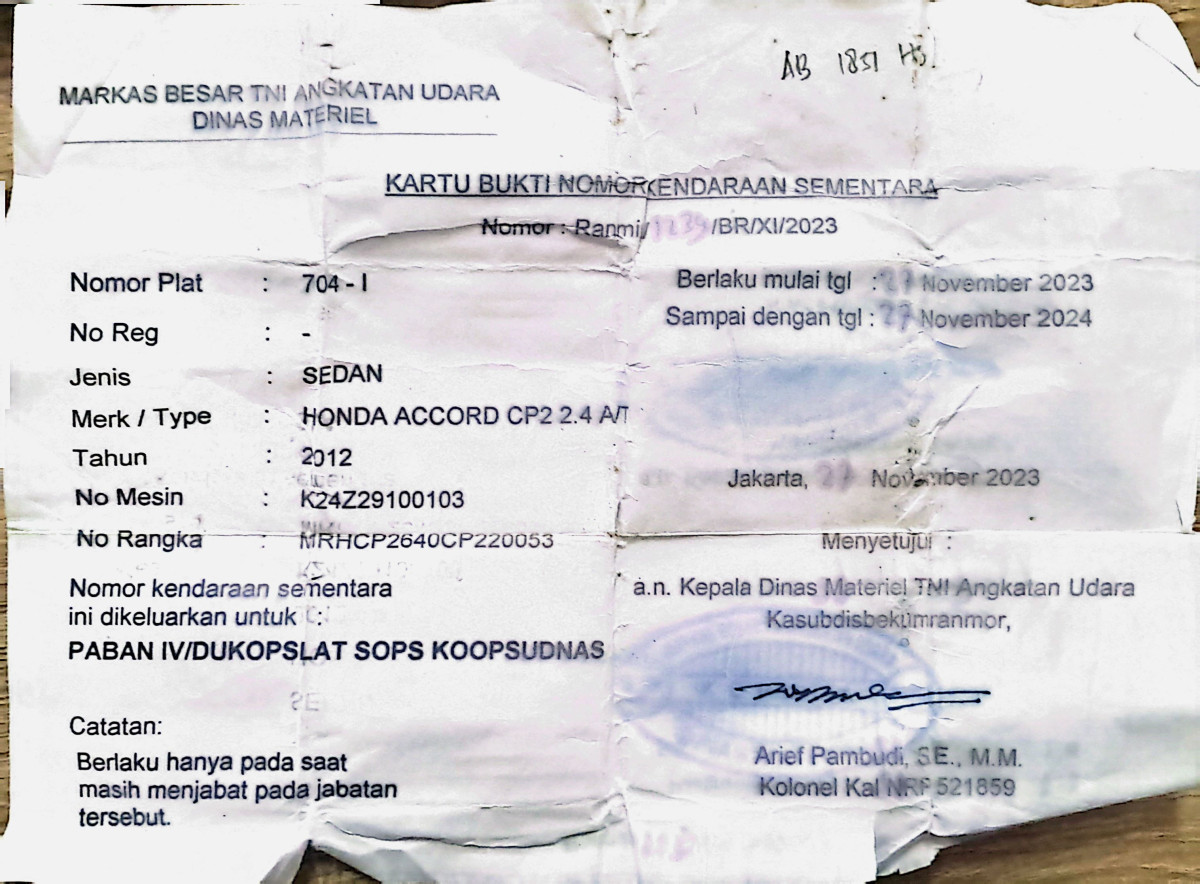 AB 1851 HS
MARKAS BESAR TNI ANGKATAN UDARA
DINAS MATERIEL
KARTU BUKTI NOMOR KENDARAAN SEMENTARA
Nomor : Ranmi/1239/BR/XI/2023
Nomor Plat : 704 - I
No Reg : -
Jenis : SEDAN
Merk / Type : HONDA ACCORD CP2 2.4 A/T
Tahun : 2012
No Mesin : K24Z29100103
No Rangka : MRHCP2640CP220053
Nomor kendaraan sementara
ini dikeluarkan untuk :
PABAN IV/DUKOPSLAT SOPS KOOPSUDNAS
Catatan:
Berlaku hanya pada saat
masih menjabat pada jabatan
tersebut.
Berlaku mulai tgl : 27 November 2023
Sampai dengan tgl : 27 November 2024
Jakarta, 27 November 2023
Menyetujui :
a.n. Kepala Dinas Materiel TNI Angkatan Udara
Kasubdisbekumranmor,
Arief Pambudi, SE., M.M.
Kolonel Kal NRP 521859